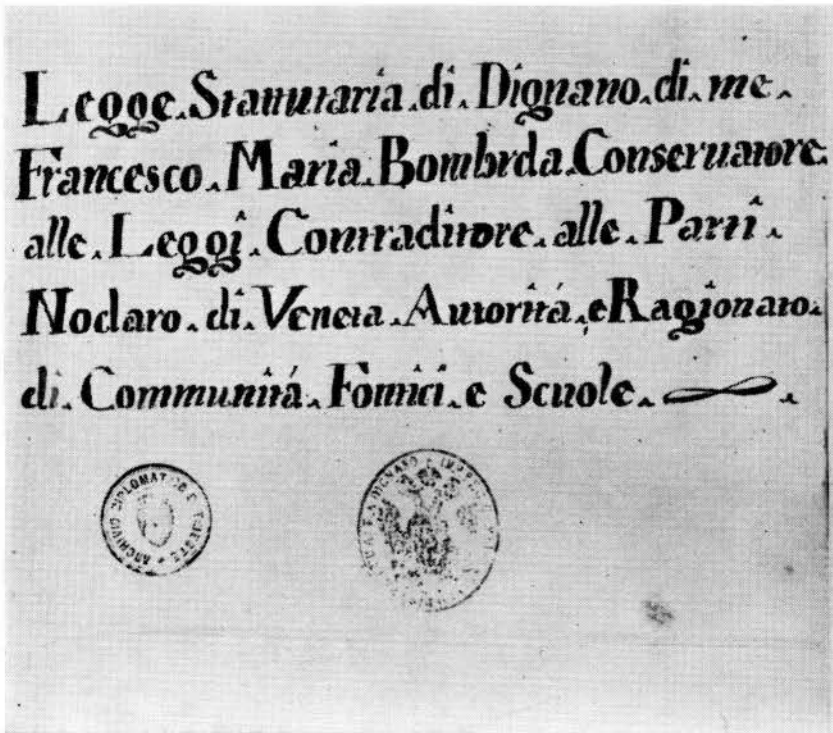 Legge Stattutaria di Dignano di me
Francesco Maria Bombrda Conseruatore
alle Leggi Contraditore alle Parti
Nodaro di Veneta Autoritá e Ragionato
di Communitá Fontici e Scuole
ARCHIVIO DIPLOMATICO TRIESTE